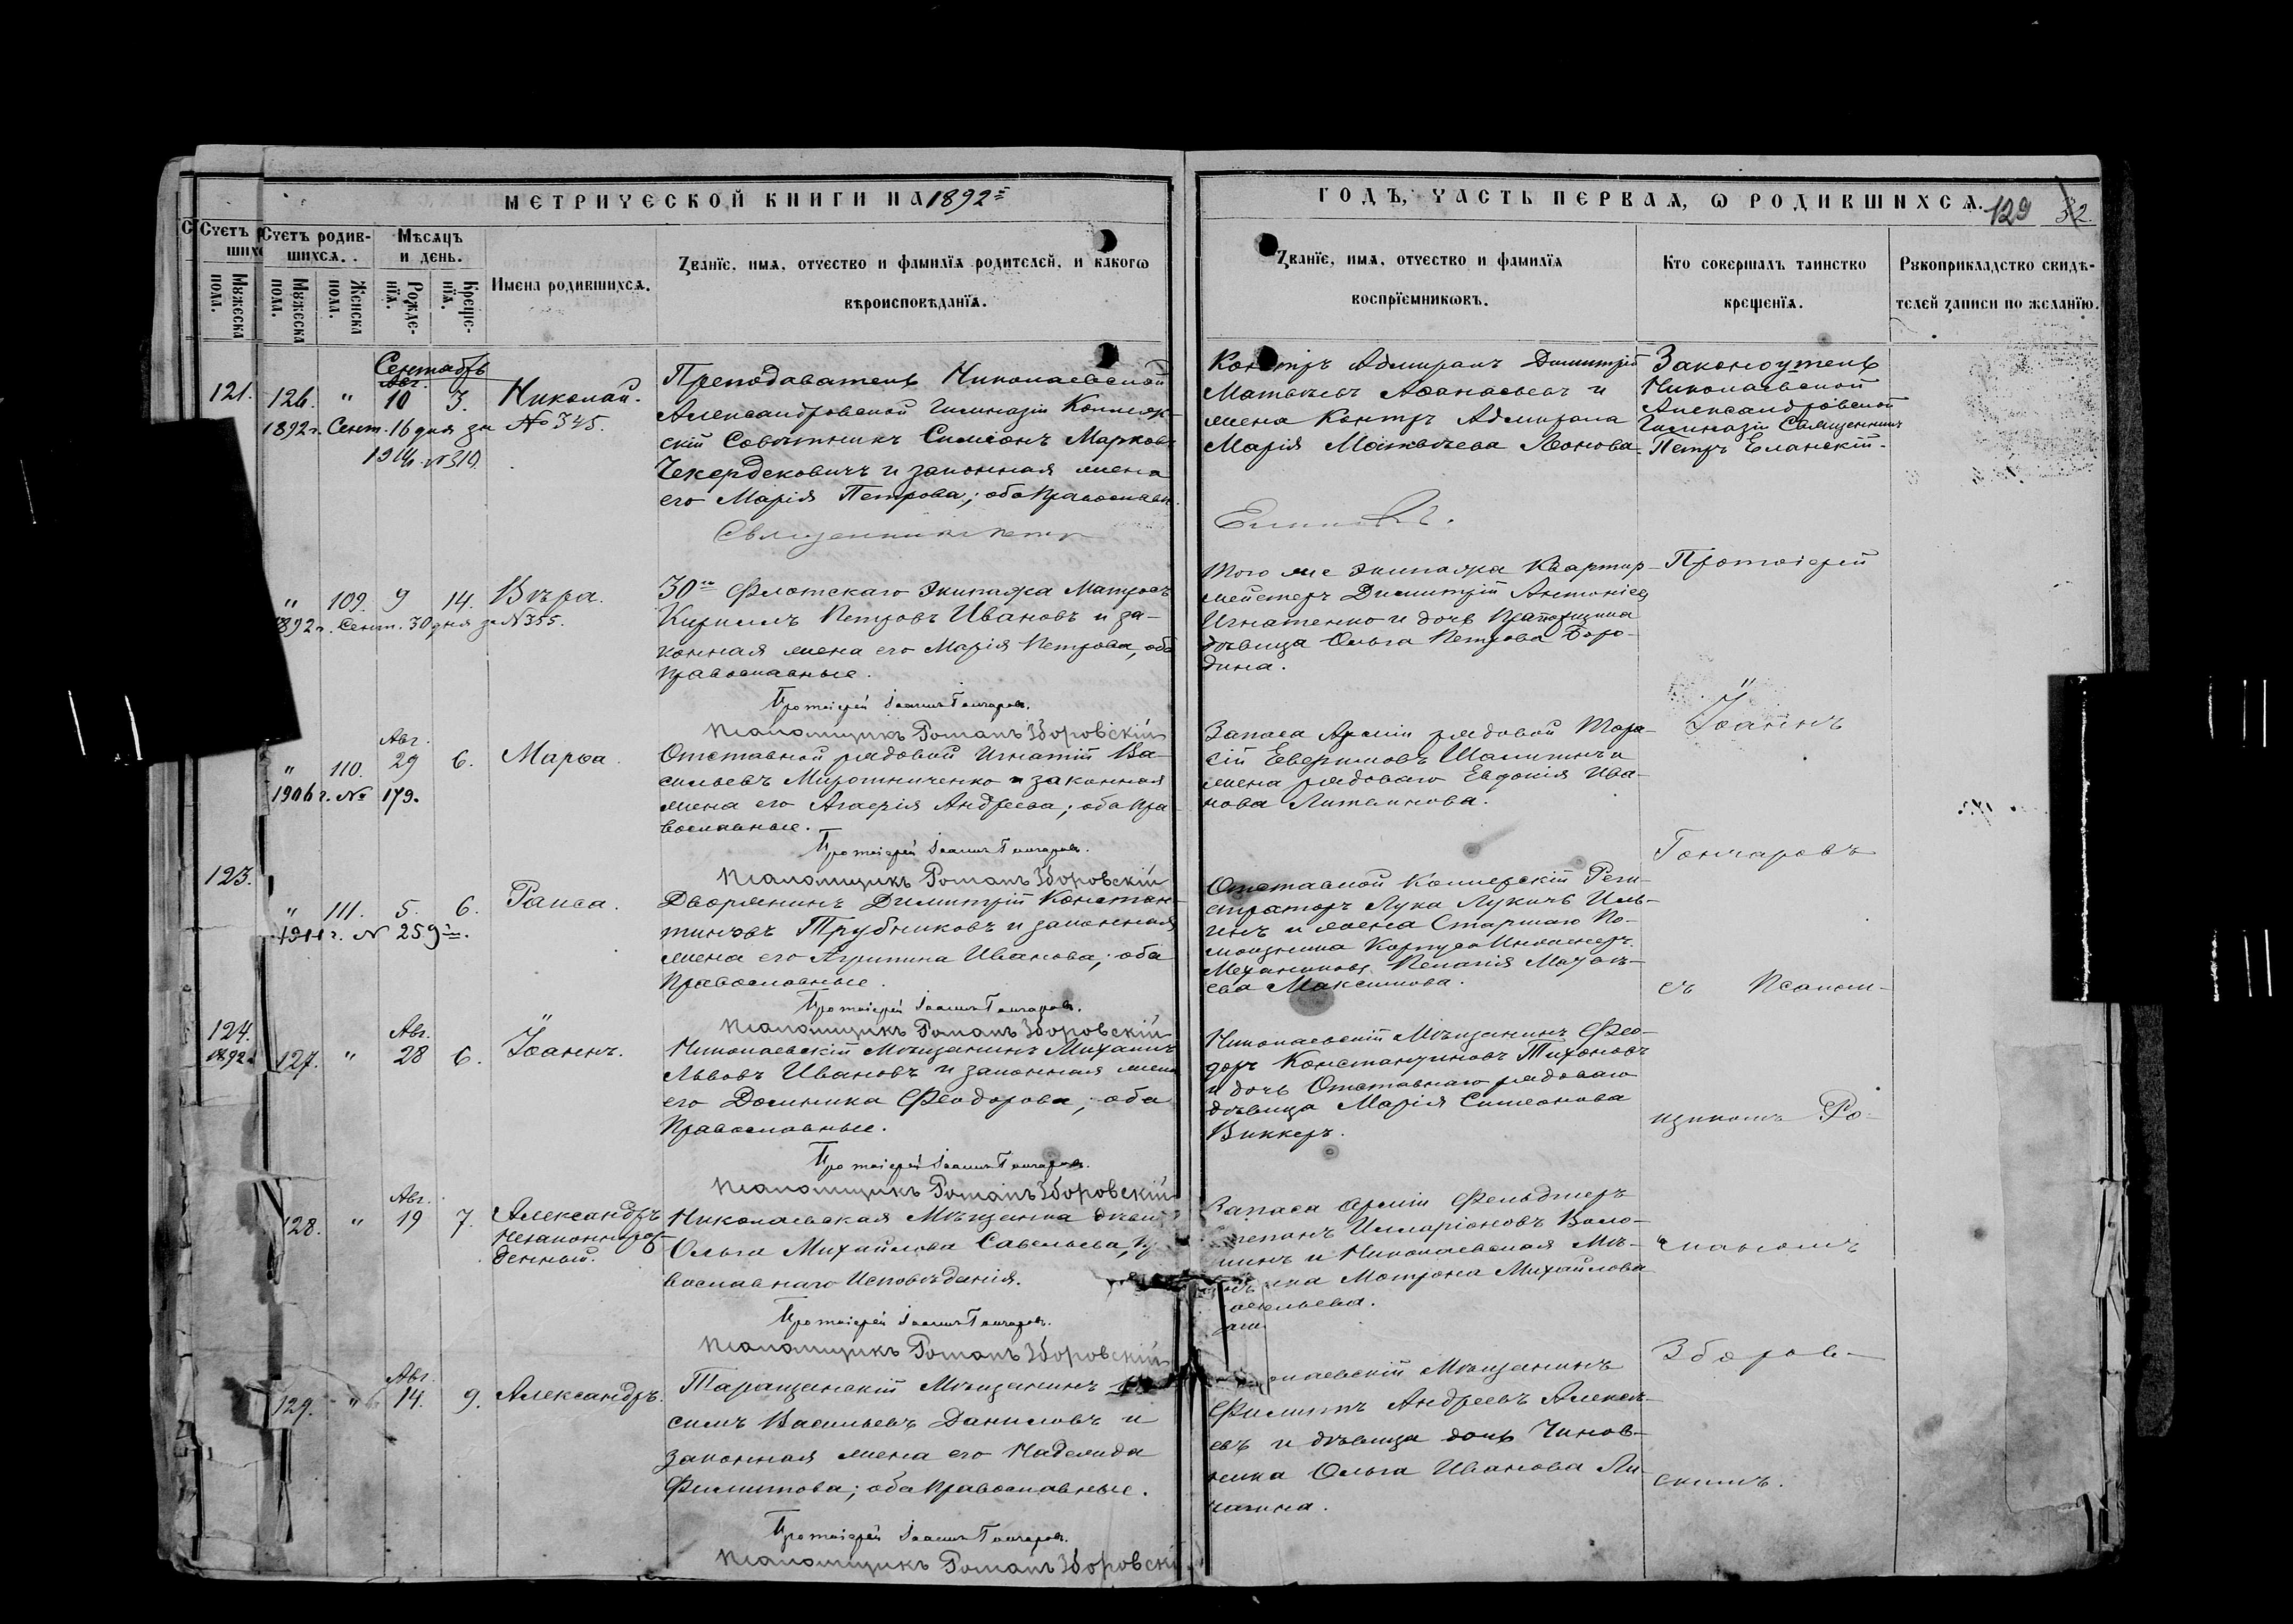 МЕТРИЧЕСКОЙ КНИГИ НА 1892
ГОДЪ, ЧАСТЬ ПЕРВАЯ, Ѡ РОДИВШИХСЯ.
129
32.
Счетъ родив-
шихся.
Мѣсяцъ
и день.
Мужеска пола.
Женска пола.
Рожде-
нїя.
Креще-
нїя.
Имена родившихся.
Званїе, имя, отчество и фамилїя родителей, и какогѡ
вѣроисповѣданїя.
Званїе, имя, отчество и фамилїя
воспрїемникѡвъ.
Кто совершалъ таинство
крещенїя.
Рукоприкладство свидѣ-
телей записи по желанїю.
121.
Сентябрь
Авг.
126. " 10 3. Николай.
1892 г. Сент. 16 дня за № 345.
1914 г. № 310.
Преподаватель Николаевской
Александровской Гимназіи Коллеж-
скій Совѣтникъ Симеонъ Марковъ
Чекердековичъ и законная жена
его Марія Петрова; оба православн.
Священникъ Петр
Контръ Адмиралъ Димитрій
Матвѣевъ Аѳанасьевъ и
жена Контръ Адмирала
Марія Матвѣева Леонова
Законоучитель
Николаевской
Александровской
Гимназіи Священникъ
Петръ Еланскій.
" 109. 9 14. Вѣра.
1892 г. Сент. 30 дня за № 355.
30го Флотскаго Экипажа Матросъ
Кириллъ Петровъ Ивановъ и за-
конная жена его Марія Петрова, оба
православные.
Протоіерей Іоаннъ Гончаровъ.
Псаломщикъ Романъ Зборовскій
Того же Экипажа Квартир-
мейстеръ Димитрій Антоніев
Игнатенко и дочь
дѣвица Ольга Петрова Боро-
дина.
Протоіерей
Авг.
" 110. 29 6. Марѳа.
1906 г. № 179.
Отставной рядовой Игнатій Ва-
сильевъ Мирошниченко и законная
жена его Андреева; оба пра-
вославные.
Протоіерей Іоаннъ Гончаровъ.
Псаломщикъ Романъ Зборовскій
Запаса Арміи рядовой Тара-
сій
жена рядоваго Евдокія Ива-
нова Литвинова.
Іоаннъ
123.
" 111. 5. 6. Раиса.
1911 г. № 259.
Дворянинъ Димитрій Констан-
тиновъ Трубниковъ и законная
жена его Агрипина Иванова; оба
православные.
Протоіерей Іоаннъ Гончаровъ.
Псаломщикъ Романъ Зборовскій
Отставной Коллежскій Реги-
страторъ Лука Лукичъ Иль-
инъ и жена Старшаго По-
мощника Корпуса Инженеръ
Механиковъ Пелагія
ева Максимова.
Гончаровъ
съ Псалом-
124.
1892 г.
Авг.
127. " 28 6. Іоаннъ.
Николаевскій Мѣщанинъ Михаилъ
Львовъ Ивановъ и законная жена
его Домникa Ѳеодорова; оба
православные.
Протоіерей Іоаннъ Гончаровъ.
Псаломщикъ Романъ Зборовскій
Николаевскій Мѣщанинъ Фео-
доръ Константиновъ Тихоновъ
и дочь Отставнаго рядоваго
дѣвица Марія Симеонова
Виккеръ.
щикомъ Ро-
Авг.
128. " 19 7. Александръ
Незаконнорож-
денный.
Николаевская Мѣщанка дѣви
Ольга Михайлова Савельева,
вославнаго Исповѣданія.
Протоіерей Іоаннъ Гончаровъ.
Псаломщикъ Романъ Зборовскій
Запаса Арміи Фельдшеръ
Илларіоновъ Воло-
и Николаевская Мѣ-
Матрона Михайлова
маномъ
Авг.
129. " 14. 9. Александръ.
Таращанскій Мѣщанинъ
симъ Васильевъ Даниловъ и
законная жена его Надежда
Филипова; оба православные.
Протоіерей Іоаннъ Гончаровъ.
Псаломщикъ Романъ Зборовскі
Мѣщанинъ
Филиппъ Андреевъ Алексѣ-
евъ и дѣвица дочь Чинов-
ника Ольга Иванова Ли-
Зборов-
скимъ.